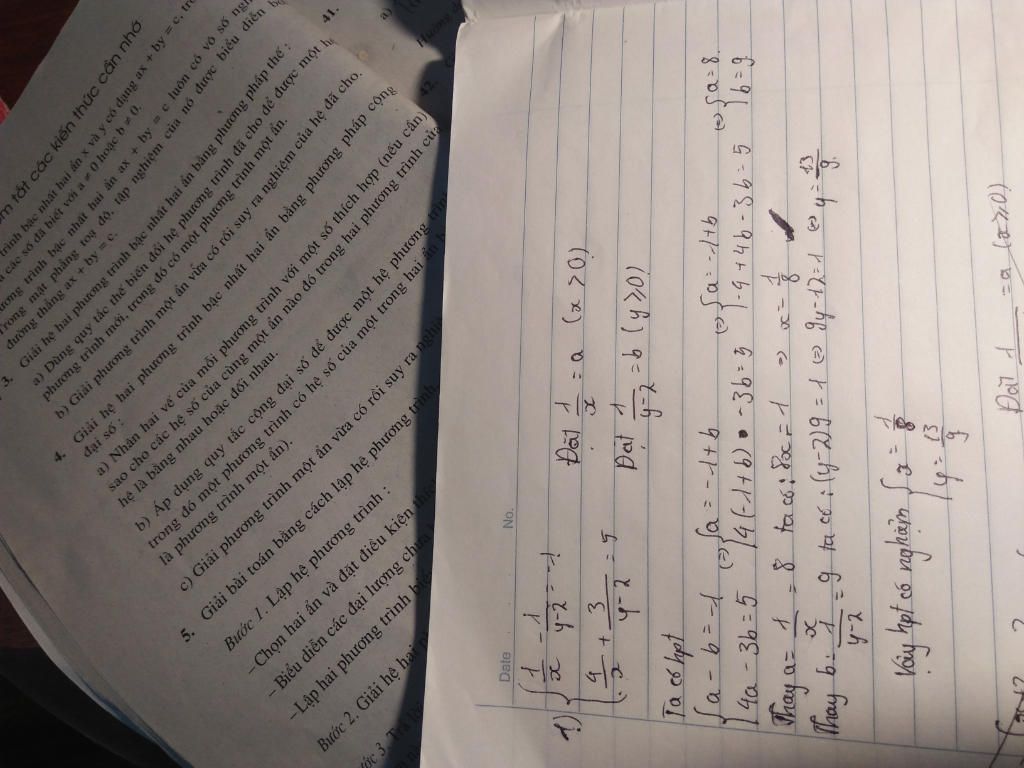 m tắt các kiến thức cần nhớ
trình bậc nhất hai ẩn x và y có dạng ax + by = c, tr
các số đã biết với a ≠ 0 hoặc b ≠ 0.
ương trình bậc nhất hai ẩn ax + by = c luôn có vô số ngh
Trong mặt phẳng toạ độ, tập nghiệm của nó được biểu diễn bở
đường thẳng ax + by = c.
3. Giải hệ hai phương trình bậc nhất hai ẩn bằng phương pháp thế :
a) Dùng quy tắc thế biến đổi hệ phương trình đã cho để được một h
phương trình mới, trong đó có một phương trình một ẩn.
b) Giải phương trình một ẩn vừa có rồi suy ra nghiệm của hệ đã cho.
4. Giải hệ hai phương trình bậc nhất hai ẩn bằng phương pháp cộng
đại số :
a) Nhân hai vế của mỗi phương trình với một số thích hợp (nếu cần)
sao cho các hệ số của cùng một ẩn nào đó trong hai phương trình của
hệ là bằng nhau hoặc đối nhau.
b) Áp dụng quy tắc cộng đại số để được một hệ phương trình
trong đó một phương trình có hệ số của một trong hai ẩn b
là phương trình một ẩn).
c) Giải phương trình một ẩn vừa có rồi suy ra nghiệ
5. Giải bài toán bằng cách lập hệ phương trình
Bước 1. Lập hệ phương trình :
–Chọn hai ẩn và đặt điều kiện thích
– Biểu diễn các đại lượng chưa b
–Lập hai phương trình biể
Bước 2. Giải hệ hai p
41.
a)
42.
Date No.
1) { 1/x - 1/y-2 = -1 Đặt 1/x = a (x > 0)
{ 4/x + 3/y-2 = 5 Đặt 1/y-2 = b (y > 0)
Ta có hpt
{ a - b = -1 <=> { a = -1 + b <=> { a = -1 + b <=> { a = 8
{ 4a - 3b = 5 { 4(-1+b) - 3b = 5 { -4 + 4b - 3b = 5 { b = 9
Thay a = 1/x = 8 ta có: 8x = 1 => x = 1/8
Thay b = 1/y-2 = 9 ta có: (y-2)9 = 1 <=> 9y - 17 = 1 <=> y = 13/9
Vậy hpt có nghiệm { x = 1/8
{ y = 13/9
Đặt 1 = a (x ≥ 0)